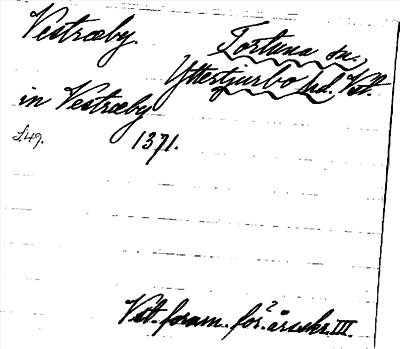 Vestræby.
Tortuna sn.,
Yttertjurbo hd. Vst.
in Vestræby
1371.
S.49.
Vst. foram. för² årsskr. III.